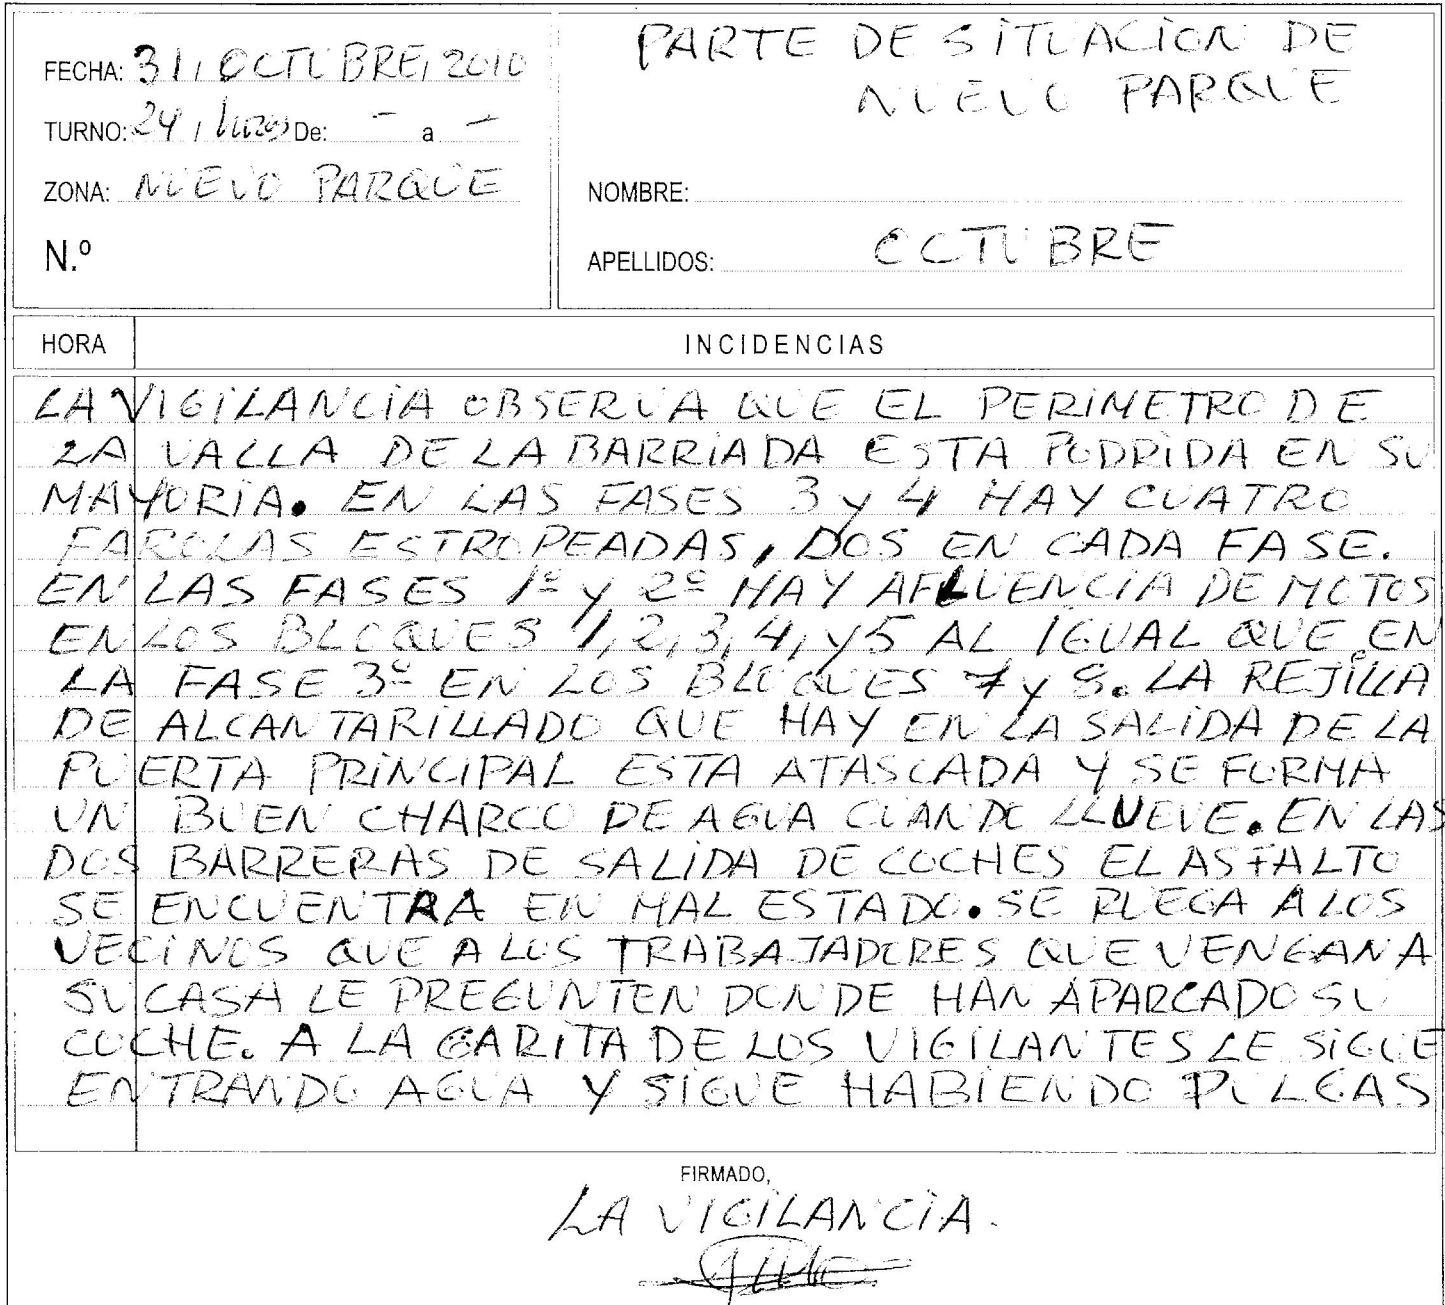 FECHA: 31, OCTUBRE, 2010
TURNO: 24, horas De: - a -
ZONA: NUEVO PARQUE
N.º
PARTE DE SITUACION DE
NUEVO PARQUE
NOMBRE:
APELLIDOS: OCTUBRE
HORA
INCIDENCIAS
LA VIGILANCIA OBSERVA QUE EL PERIMETRO DE
LA VALLA DE LA BARRIADA ESTA PODRIDA EN SU
MAYORIA. EN LAS FASES 3 y 4 HAY CUATRO
FAROLAS ESTROPEADAS, DOS EN CADA FASE.
EN LAS FASES 1º y 2º HAY AFLUENCIA DE MOTOS
EN LOS BLOQUES 1, 2, 3, 4, y 5 AL IGUAL QUE EN
LA FASE 3º EN LOS BLOQUES 7 y 8. LA REJILLA
DE ALCANTARILLADO QUE HAY EN LA SALIDA DE LA
PUERTA PRINCIPAL ESTA ATASCADA Y SE FORMA
UN BUEN CHARCO DE AGUA CUANDO LLUEVE. EN LAS
DOS BARRERAS DE SALIDA DE COCHES EL ASFALTO
SE ENCUENTRA EN MAL ESTADO. SE RUEGA A LOS
VECINOS QUE A LOS TRABAJADORES QUE VENGAN A
SU CASA LE PREGUNTEN DONDE HAN APARCADO SU
COCHE. A LA GARITA DE LOS VIGILANTES LE SIGUE
ENTRANDO AGUA Y SIGUE HABIENDO PULGAS
FIRMADO,
LA VIGILANCIA.